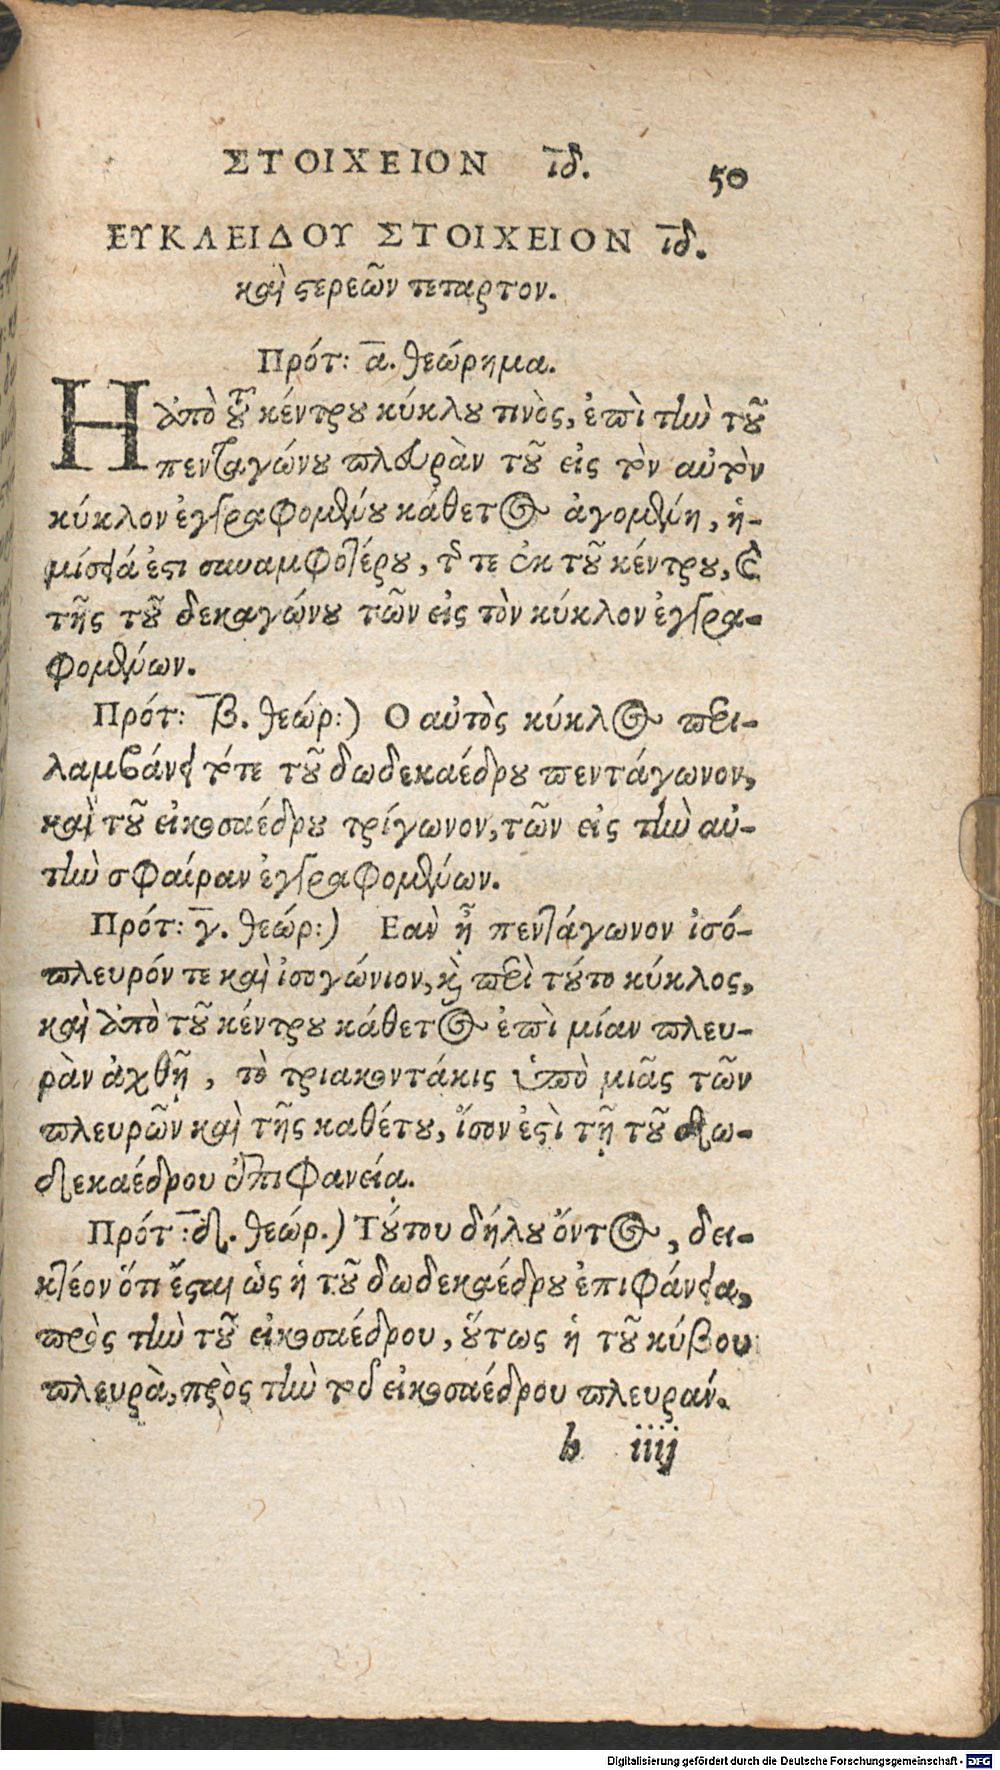 ΣΤΟΙΧΕΙΟΝ ιδ. 50
ΕΥΚΛΕΙΔΟΥ ΣΤΟΙΧΕΙΟΝ ιδ.
καὶ στερεῶν τέταρτον.
Πρότ: α. θεώρημα.
Η ἀπὸ τοῦ κέντρου κύκλου τινὸς, ἐπὶ τὴν τοῦ
πενταγώνου πλευρὰν τοῦ εἰς τὸν αὐτὸν
κύκλον ἐγγραφομένου κάθετος ἀγομένη, ἡ-
μίσειά ἐστι συναμφοτέρου, τῆς τε ἐκ τοῦ κέντρου, καὶ
τῆς τοῦ δεκαγώνου τῶν εἰς τὸν κύκλον ἐγγρα-
φομένων.
Πρότ: β. θεώρ:) Ο αὐτὸς κύκλος περι-
λαμβάνει τό τε τοῦ δωδεκαέδρου πεντάγωνον,
καὶ τοῦ εἰκοσαέδρου τρίγωνον, τῶν εἰς τὴν αὐ-
τὴν σφαίραν ἐγγραφομένων.
Πρότ: γ. θεώρ:) Εαν ᾖ πεντάγωνον ἰσό-
πλευρόν τε καὶ ἰσογώνιον, καὶ περὶ τοῦτο κύκλος,
καὶ ἀπὸ τοῦ κέντρου κάθετος ἐπὶ μίαν πλευ-
ρὰν ἀχθῇ, τὸ τριακοντάκις ὑπὸ μιᾶς τῶν
πλευρῶν καὶ τῆς καθέτου, ἴσον ἐστὶ τῇ τοῦ δω-
δεκαέδρου ἐπιφανείᾳ.
Πρότ: δ. θεώρ.) Τούτου δήλου ὄντος, δει-
κτέον ὅτι ἔσται ὡς ἡ τοῦ δωδεκαέδρου ἐπιφάνεια,
πρὸς τὴν τοῦ εἰκοσαέδρου, οὕτως ἡ τοῦ κύβου
πλευρὰ, πρὸς τὴν τοῦ εἰκοσαέδρου πλευράν.
b iiij
Digitalisierung gefördert durch die Deutsche Forschungsgemeinschaft - DFG